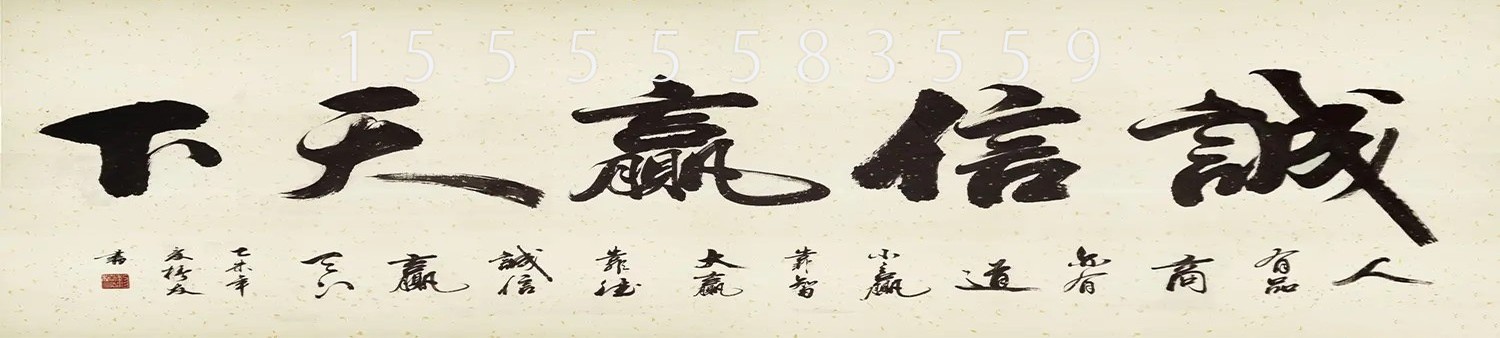 15555583559
誠信贏天下
人有品商有道小贏靠智大贏靠德誠信贏天下乙未年書